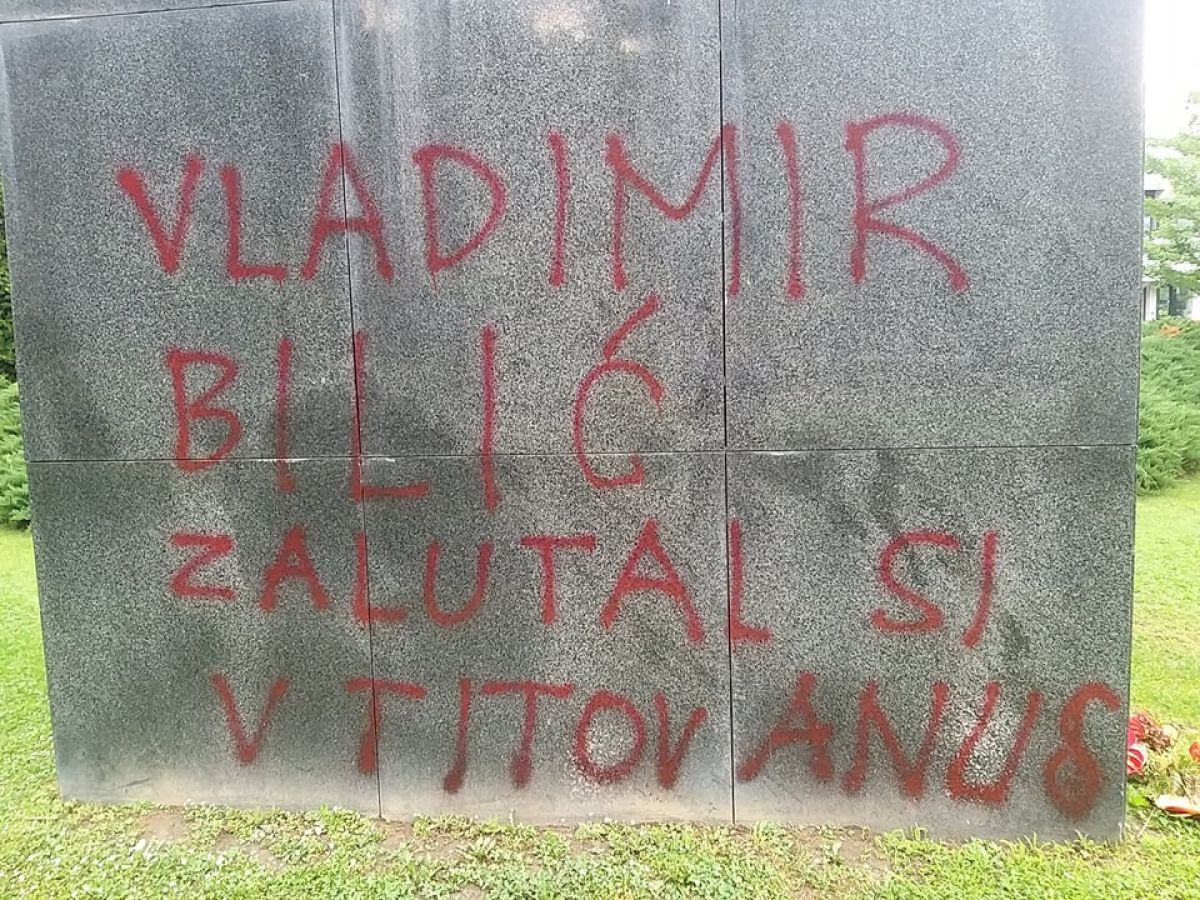 VLADIMIR
BILIĆ
ZALUTAL SI
V TITOV ANUS